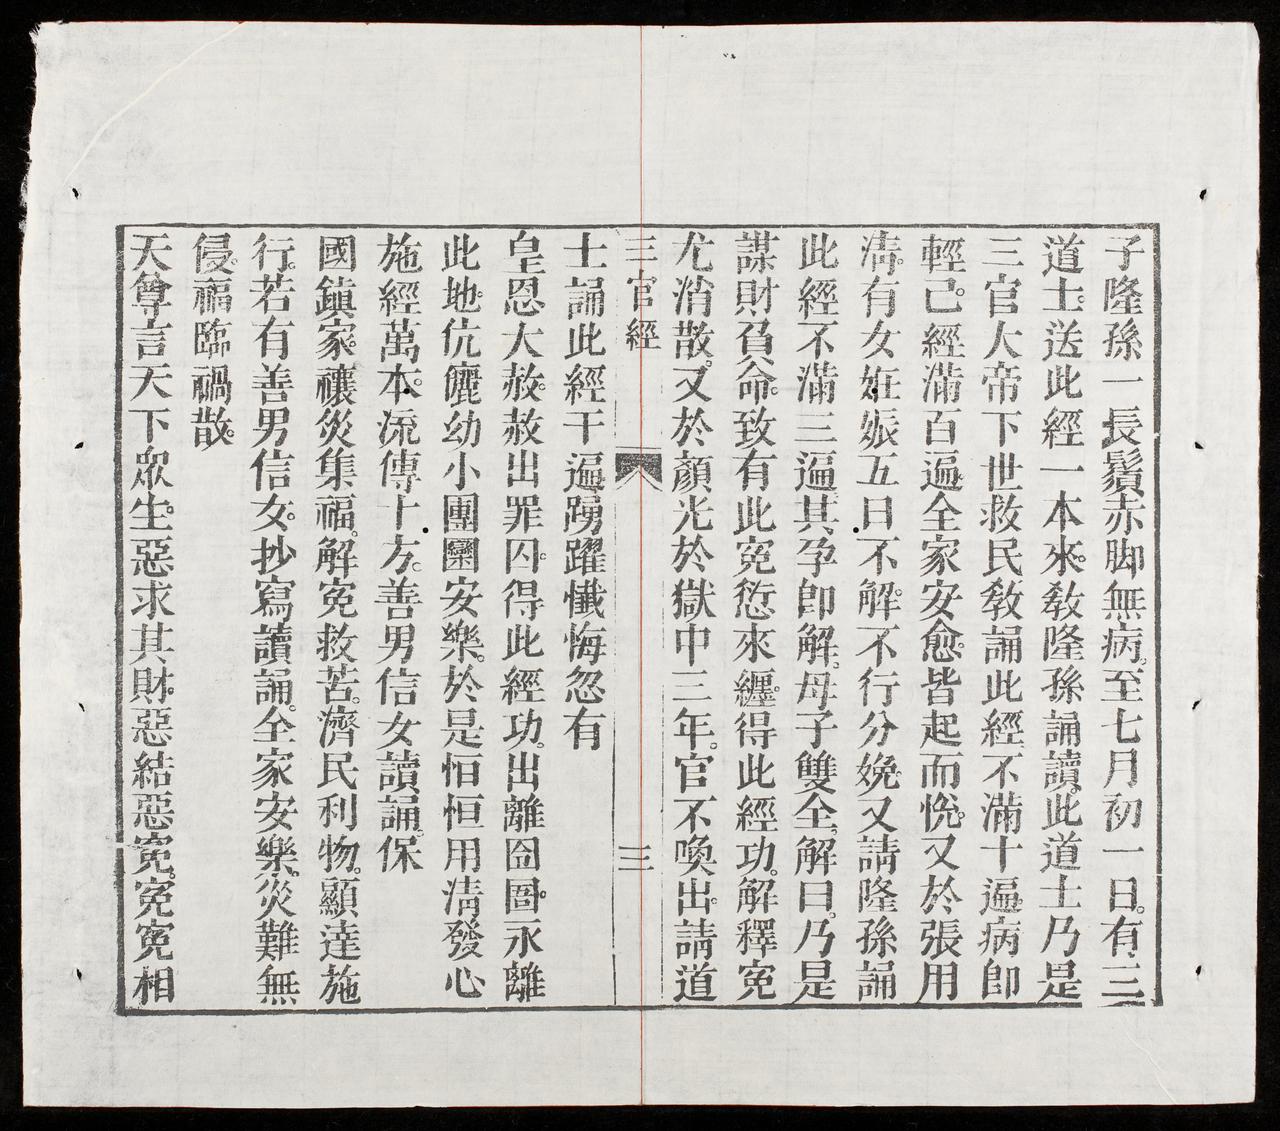 子隆孫一長鬚赤脚無病。至七月初一日。有三
道士。送此經一本來。教隆孫誦讀。此道士乃是
三官大帝下世救民教誦此經。不滿十遍。病卽
輕己。經滿百遍。全家安愈。皆起而悅。又於張用
淸。有女妊娠五日不解。不行分娩。又請隆孫誦
此經不滿三遍。其孕卽解。母子雙全。解曰。乃是
謀財負命。致有此寃愆來纏。得此經功。解釋寃
尤消散。又於顏光於獄中三年。官不喚出。請道
三官經
三
士誦此經千遍。踴躍懺悔忽有
皇恩大赦。赦出罪囚。得此經功。出離囹圄。永離
此地。伉儷幼小團圞安樂。於是怕恒用淸發心
施經萬本。流傳十方。善男信女讀誦。保
國鎮家。禳災集福。解寃救苦。濟民利物。顯達施
行。若有善男信女。抄寫讀誦。全家安樂。災難無
侵。福臨禍散。
天尊言天下眾生。惡求其財。惡結惡寃。寃寃相